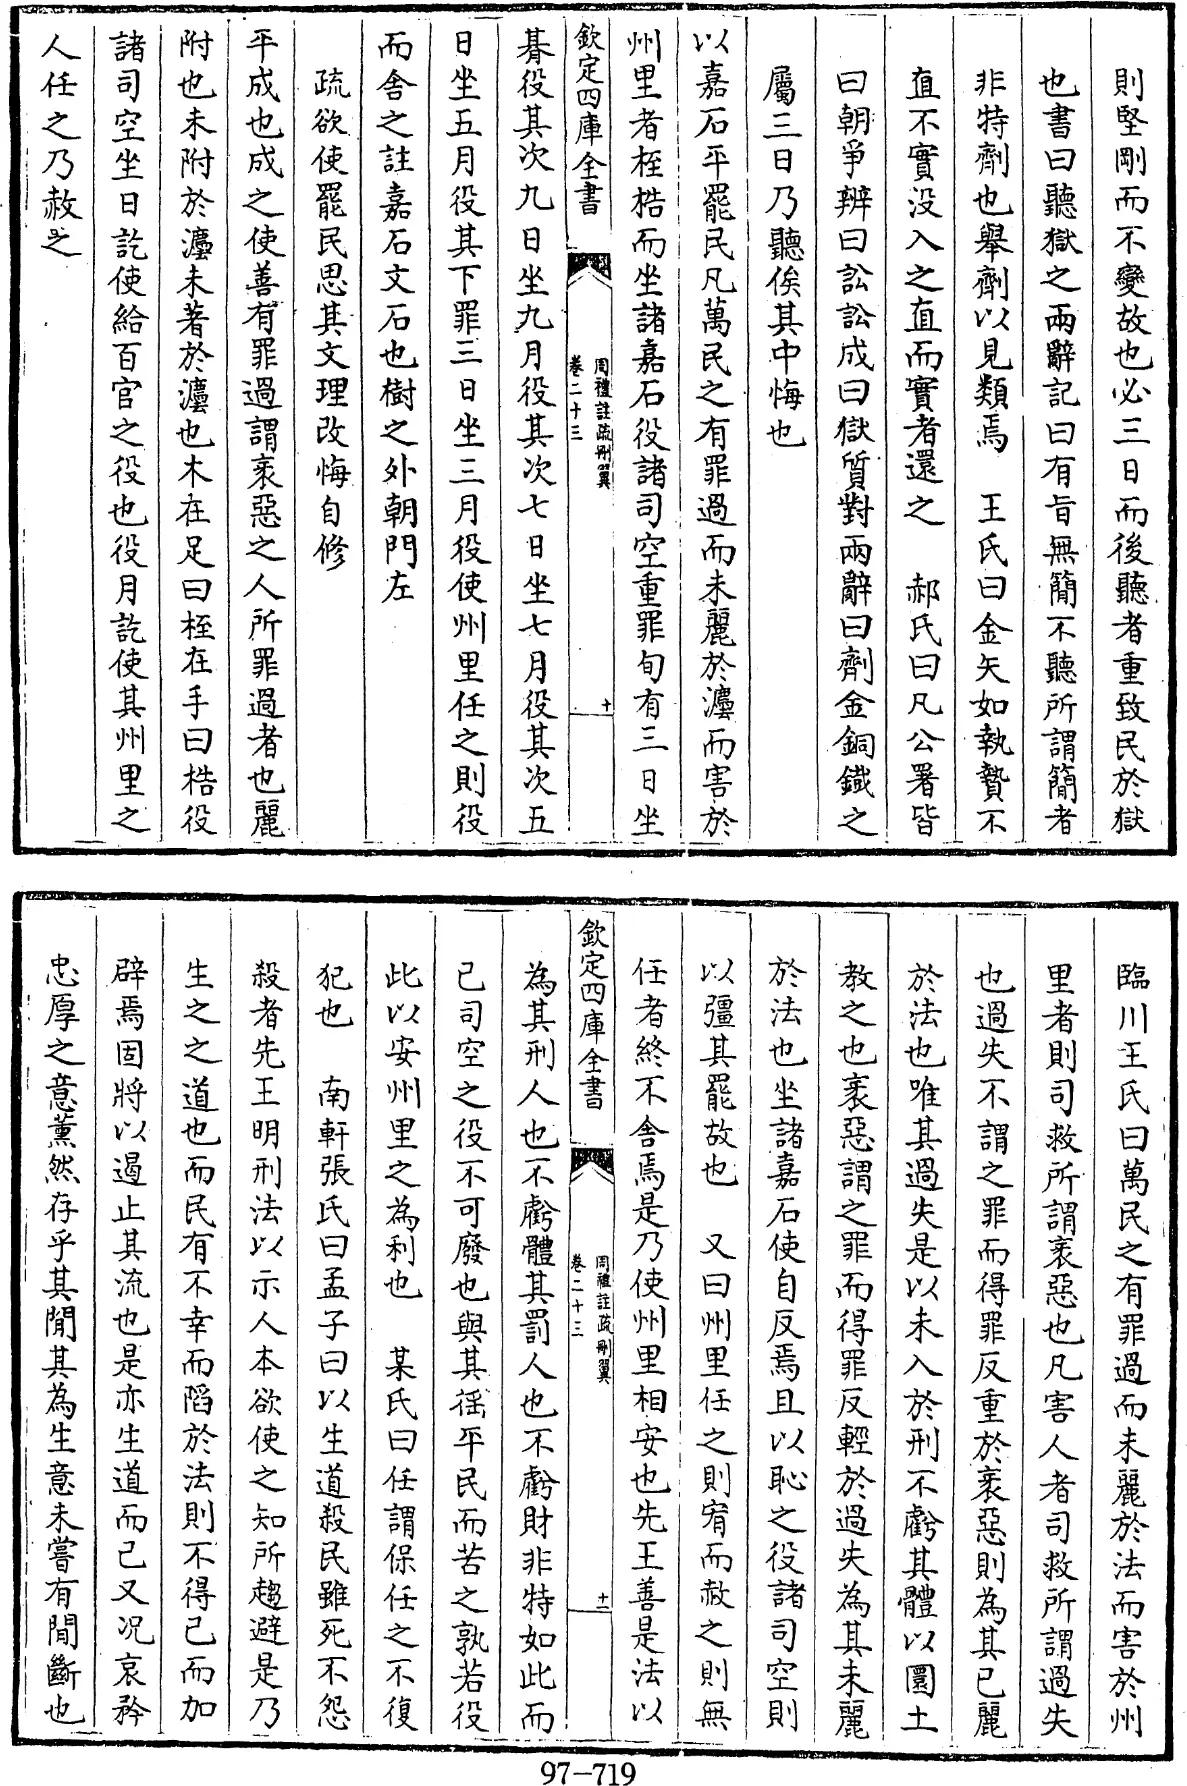 則堅剛而不變故也必三日而後聽者重致民於獄
也書曰聽獄之兩辭記曰有旨無簡不聽所謂簡者
非特劑也舉劑以見類焉　王氏曰金矢如執贄不
直不實没入之直而實者還之　郝氏曰凡公署皆
曰朝爭辨曰訟訟成曰獄質對兩辭曰劑金銅鐡之
屬三日乃聽俟其中悔也
以嘉石平罷民凡萬民之有罪過而未麗於灋而害於
州里者桎梏而坐諸嘉石役諸司空重罪旬有三日坐
欽定四庫全書
周禮註疏刪翼
卷二十三
十
朞役其次九日坐九月役其次七日坐七月役其次五
日坐五月役其下罪三日坐三月役使州里任之則役
而舎之註嘉石文石也樹之外朝門左
疏欲使罷民思其文理改悔自修
平成也成之使善有罪過謂衺惡之人所罪過者也麗
附也未附於灋未著於灋也木在足曰桎在手曰梏役
諸司空坐日訖使給百官之役也役月訖使其州里之
人任之乃赦之
臨川王氏曰萬民之有罪過而未麗於法而害於州
里者則司救所謂衺惡也凡害人者司救所謂過失
也過失不謂之罪而得罪反重於衺惡則為其已麗
於法也唯其過失是以未入於刑不虧其體以圜土
教之也衺惡謂之罪而得罪反輕於過失為其未麗
於法也坐諸嘉石使自反焉且以恥之役諸司空則
以彊其罷故也　又曰州里任之則宥而赦之則無
任者終不舎焉是乃使州里相安也先王善是法以
欽定四庫全書
周禮註疏刪翼
卷二十三
十一
為其刑人也不虧體其罰人也不虧財非特如此而
已司空之役不可廢也與其徭平民而苦之孰若役
此以安州里之為利也　某氏曰任謂保任之不復
犯也　南軒張氏曰孟子曰以生道殺民雖死不怨
殺者先王明刑法以示人本欲使之知所趨避是乃
生之之道也而民有不幸而䧟於法則不得已而加
辟焉固將以遏止其流也是亦生道而已又况哀矜
忠厚之意薰然存乎其閒其為生意未嘗有間斷也
97-719